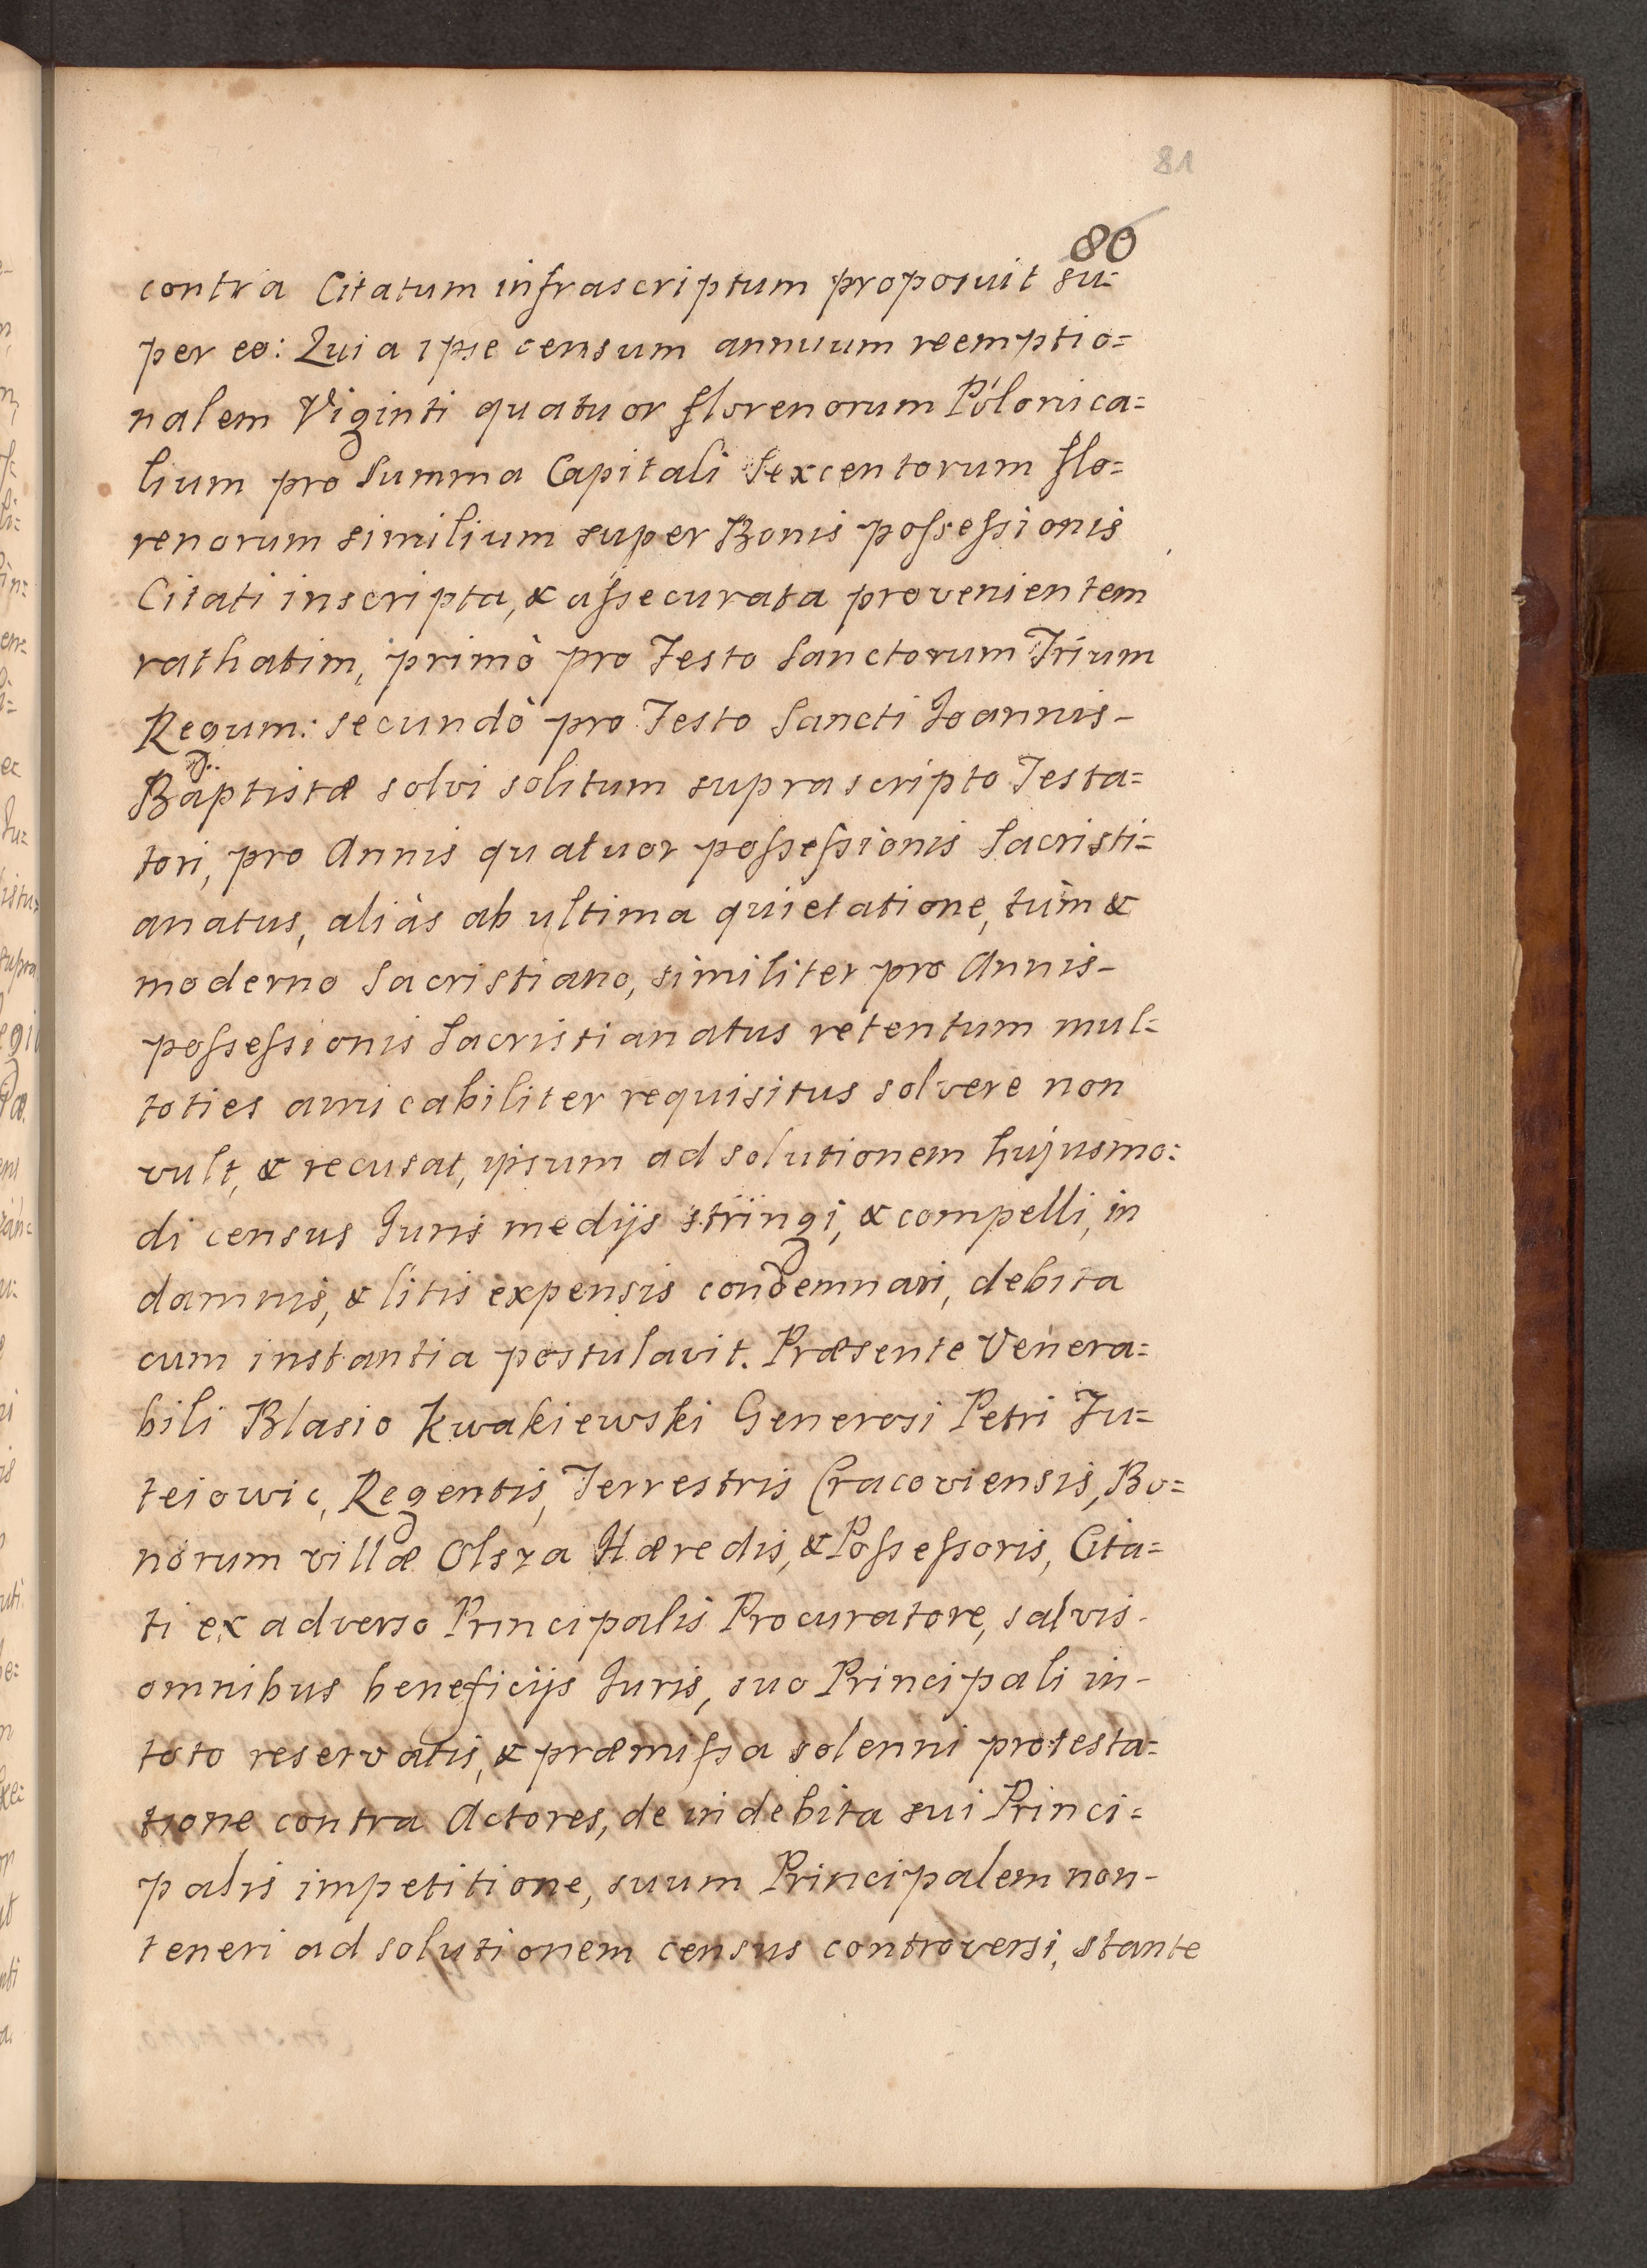 81
80
contra Citatum infrascriptum proposuit su=
per eo: Quia ipse censum annuum reemptio=
nalem Viginti quatuor florenorum Polonica=
lium pro Summa Capitali Sexcentorum flo=
renorum similium super Bonis possessionis
Citati inscripta, & assecurata provenientem
rathatim, primò pro Festo Sanctorum Trium
Regum: secundò pro Festo Sancti Joannis-
Baptistæ solvi solitum suprascripto Testa=
tori, pro Annis quatuor possessionis Sacristi=
anatus, aliàs ab ultima quietatione, tùm &
moderno Sacristiano, similiter pro Annis-
possessionis Sacristianatus retentum mul=
toties amicabiliter requisitus solvere non
vult, & recusat, ipsum ad solutionem hujusmo=
di census Juris medijs stringi, & compelli, in
damnis, & litis expensis condemnari, debita
cum instantia postulavit. Præsente Venera=
bili Blasio Kwakiewski Generosi Petri Fu=
teiowic, Regentis, Terrestris Cracoviensis, Bo=
norum villæ Olsza Hæredis, & Possessoris, Cita=
ti ex adverso Principalis Procuratore, salvis-
omnibus beneficijs Juris, suo Principali in-
toto reservatis, & præmissa solenni protesta=
tione contra Actores, de indebita sui Princi=
palis impetitione, suum Principalem non-
teneri ad solutionem census controversi, stante